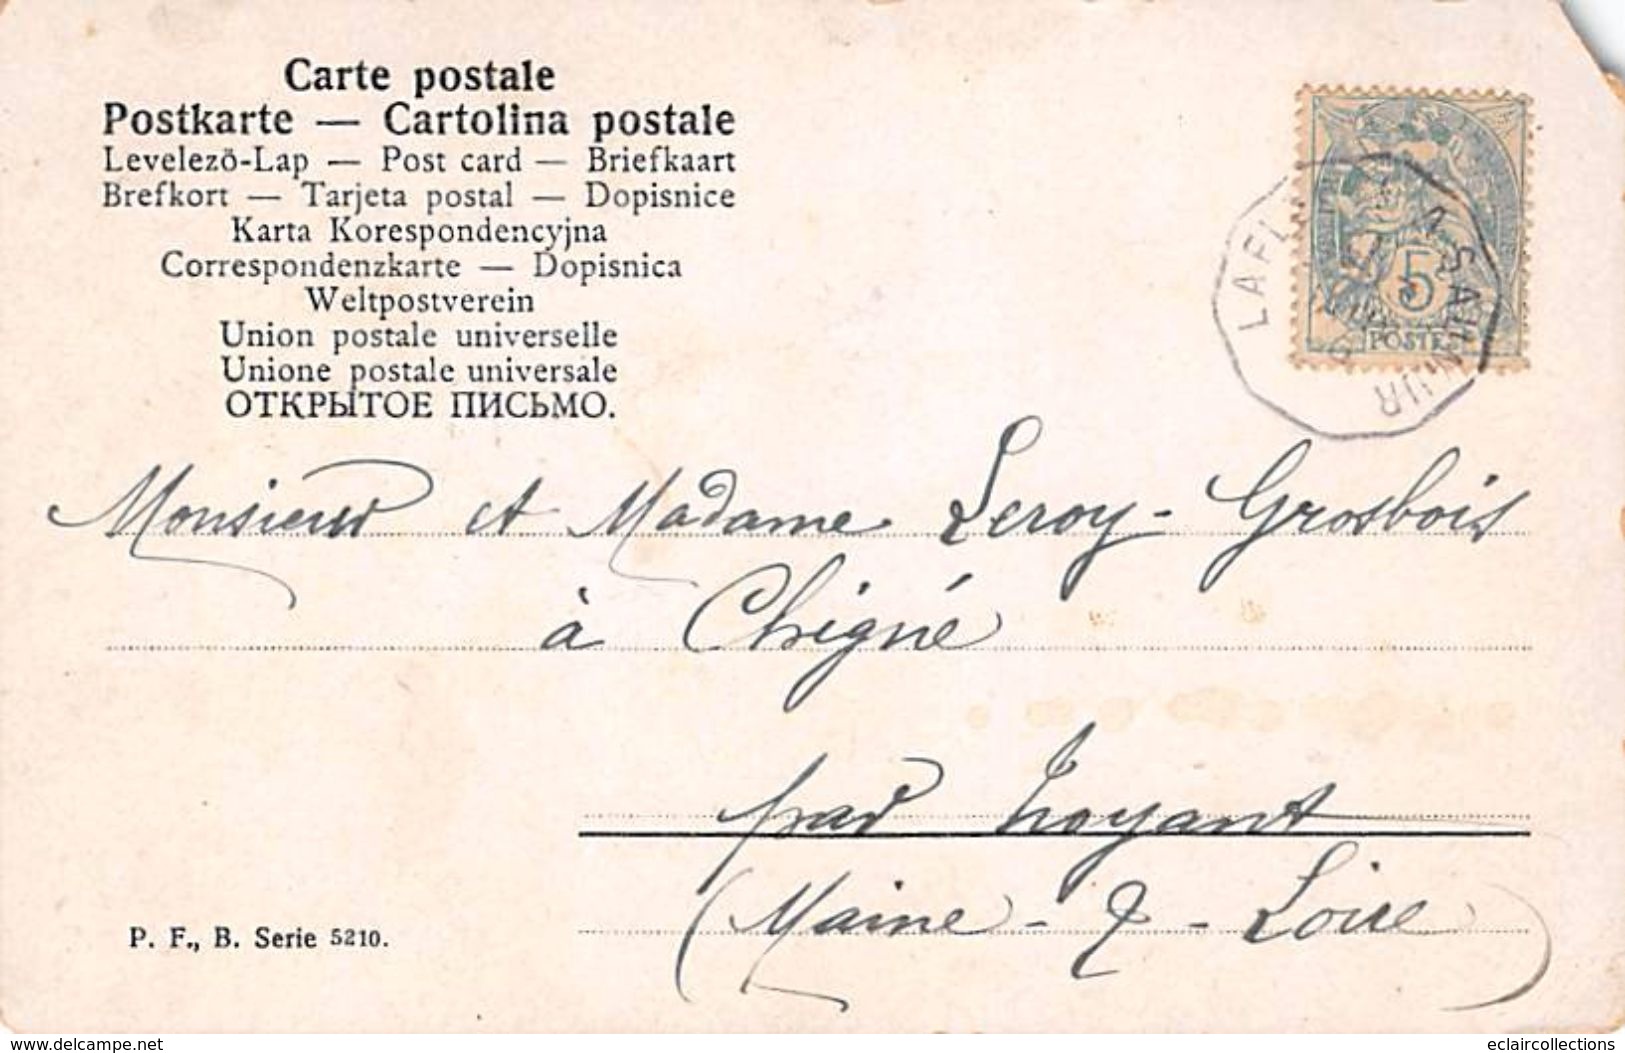 Carte postale
Postkarte — Cartolina postale
Levelező-Lap — Post card — Briefkaart
Brefkort — Tarjeta postal — Dopisnice
Karta Korespondencyjna
Correspondenzkarte — Dopisnica
Weltpostverein
Union postale universelle
Unione postale universale
ОТКРЫТОЕ ПИСЬМО.
LAFL A SAUMUR
5
POSTES
Monsieur et Madame Leroy-Grosbois
à Chigné
par Noyant
(Maine-&-Loire)
P. F., B. Serie 5210.
www.delcampe.net
eclaircollections